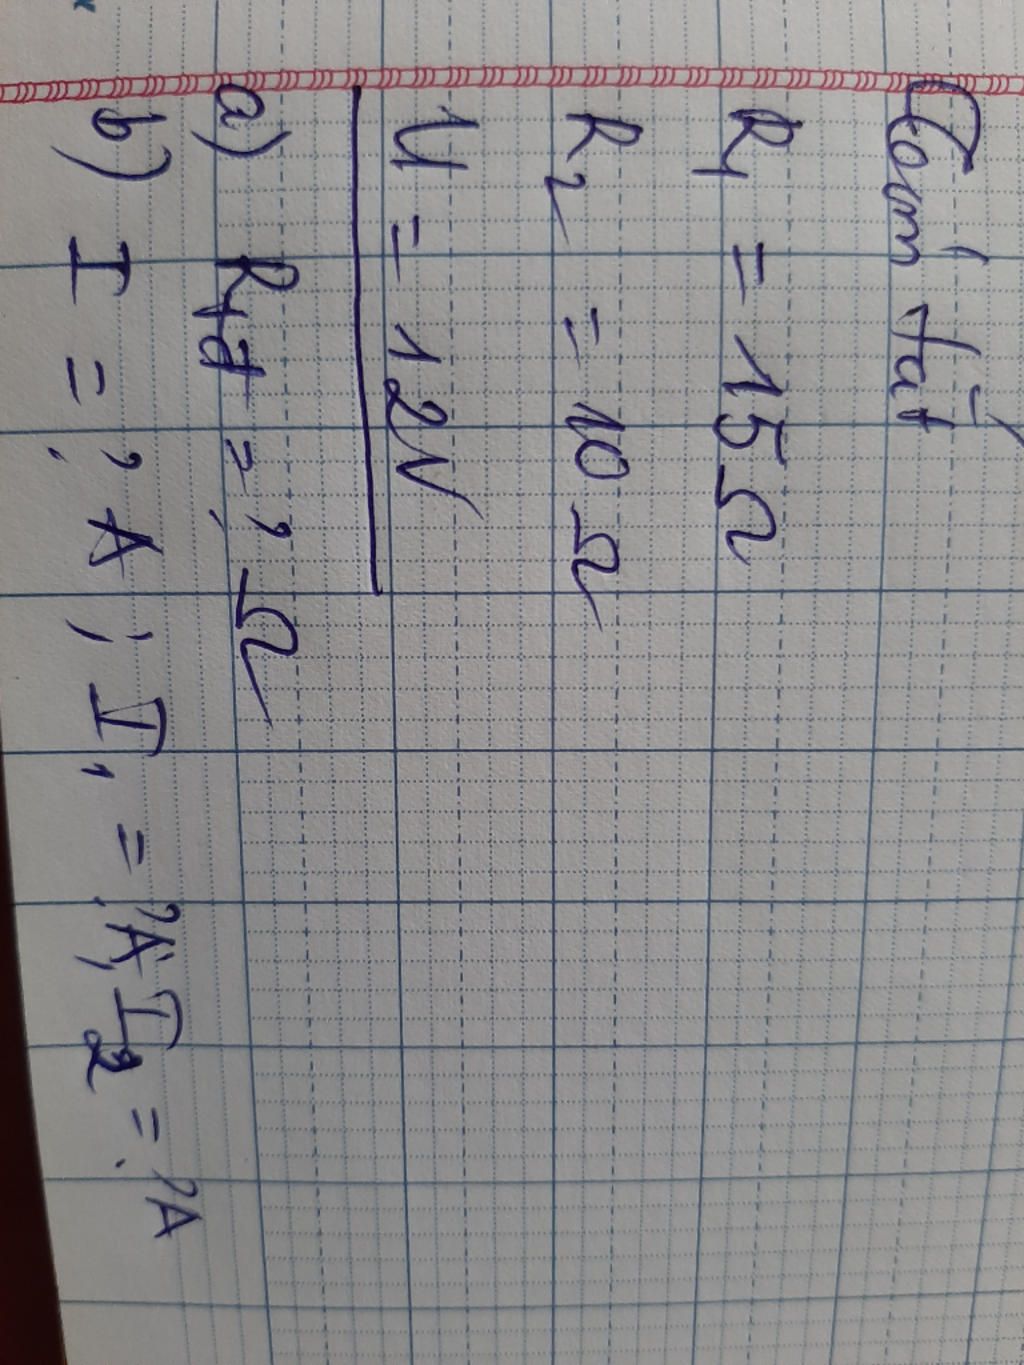 Tóm tắt
R1 = 15Ω
R2 = 10Ω
U = 12V
a) Rtđ = ? Ω
b) I = ? A ; I1 = ?A, I2 = ?A